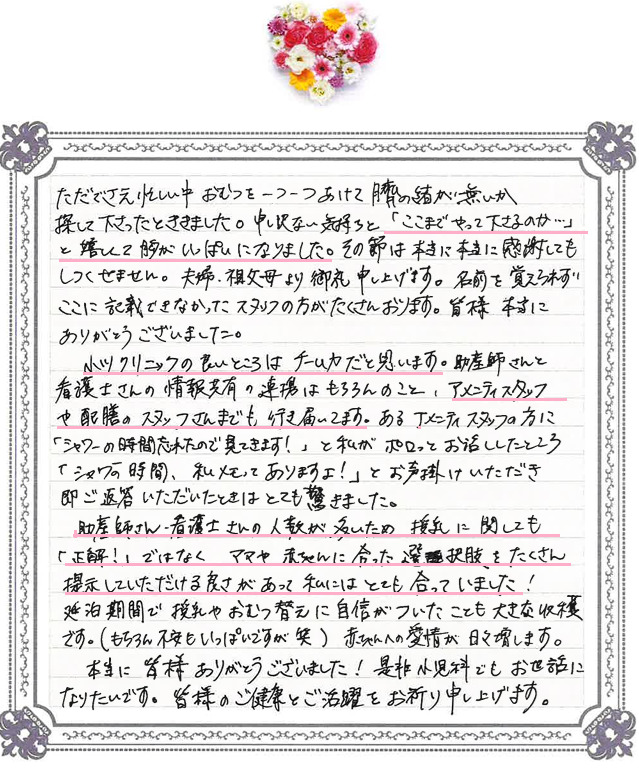 ただでさえ忙しい中 おむつを一つ一つあけて 臍の緒が無いか
探して下さったとききました。申し訳ない気持ちと「ここまでやって下さるのか…」
と嬉しくて胸がいっぱいになりました。その節は本当に本当に感謝しても
しつくせません。夫婦・祖父母より御礼申し上げます。名前を覚えられず
ここに記載できなかったスタッフの方がたくさんおります。皆様 本当に
ありがとうございました。
小川クリニックの良いところは チーム力だと思います。助産師さんと
看護士さんの情報共有の連携はもちろんのこと、アメニティスタッフ
や配膳のスタッフさんまでも行き届いてます。ある アメニティスタッフの方に
「シャワーの時間忘れたので見てきます!」と私がポロっとお話ししたところ
「シャワーの時間、私メモってありますよ!」とお声掛けいただき
即ご返答いただいたときはとても驚きました。
助産師さん・看護士さんの人数が多いため 授乳に関しても
「正解!」ではなく ママや赤ちゃんに合った選択肢をたくさん
提示していただける良さがあって私にはとても合っていました!
延泊期間で授乳やおむつ替えに自信がついたことも大きな収穫
です。(もちろん不安もいっぱいですが笑) 赤ちゃんへの愛情が日々増します。
本当に皆様ありがとうございました!是非小児科でもお世話に
なりたいです。皆様のご健康とご活躍をお祈り申し上げます。